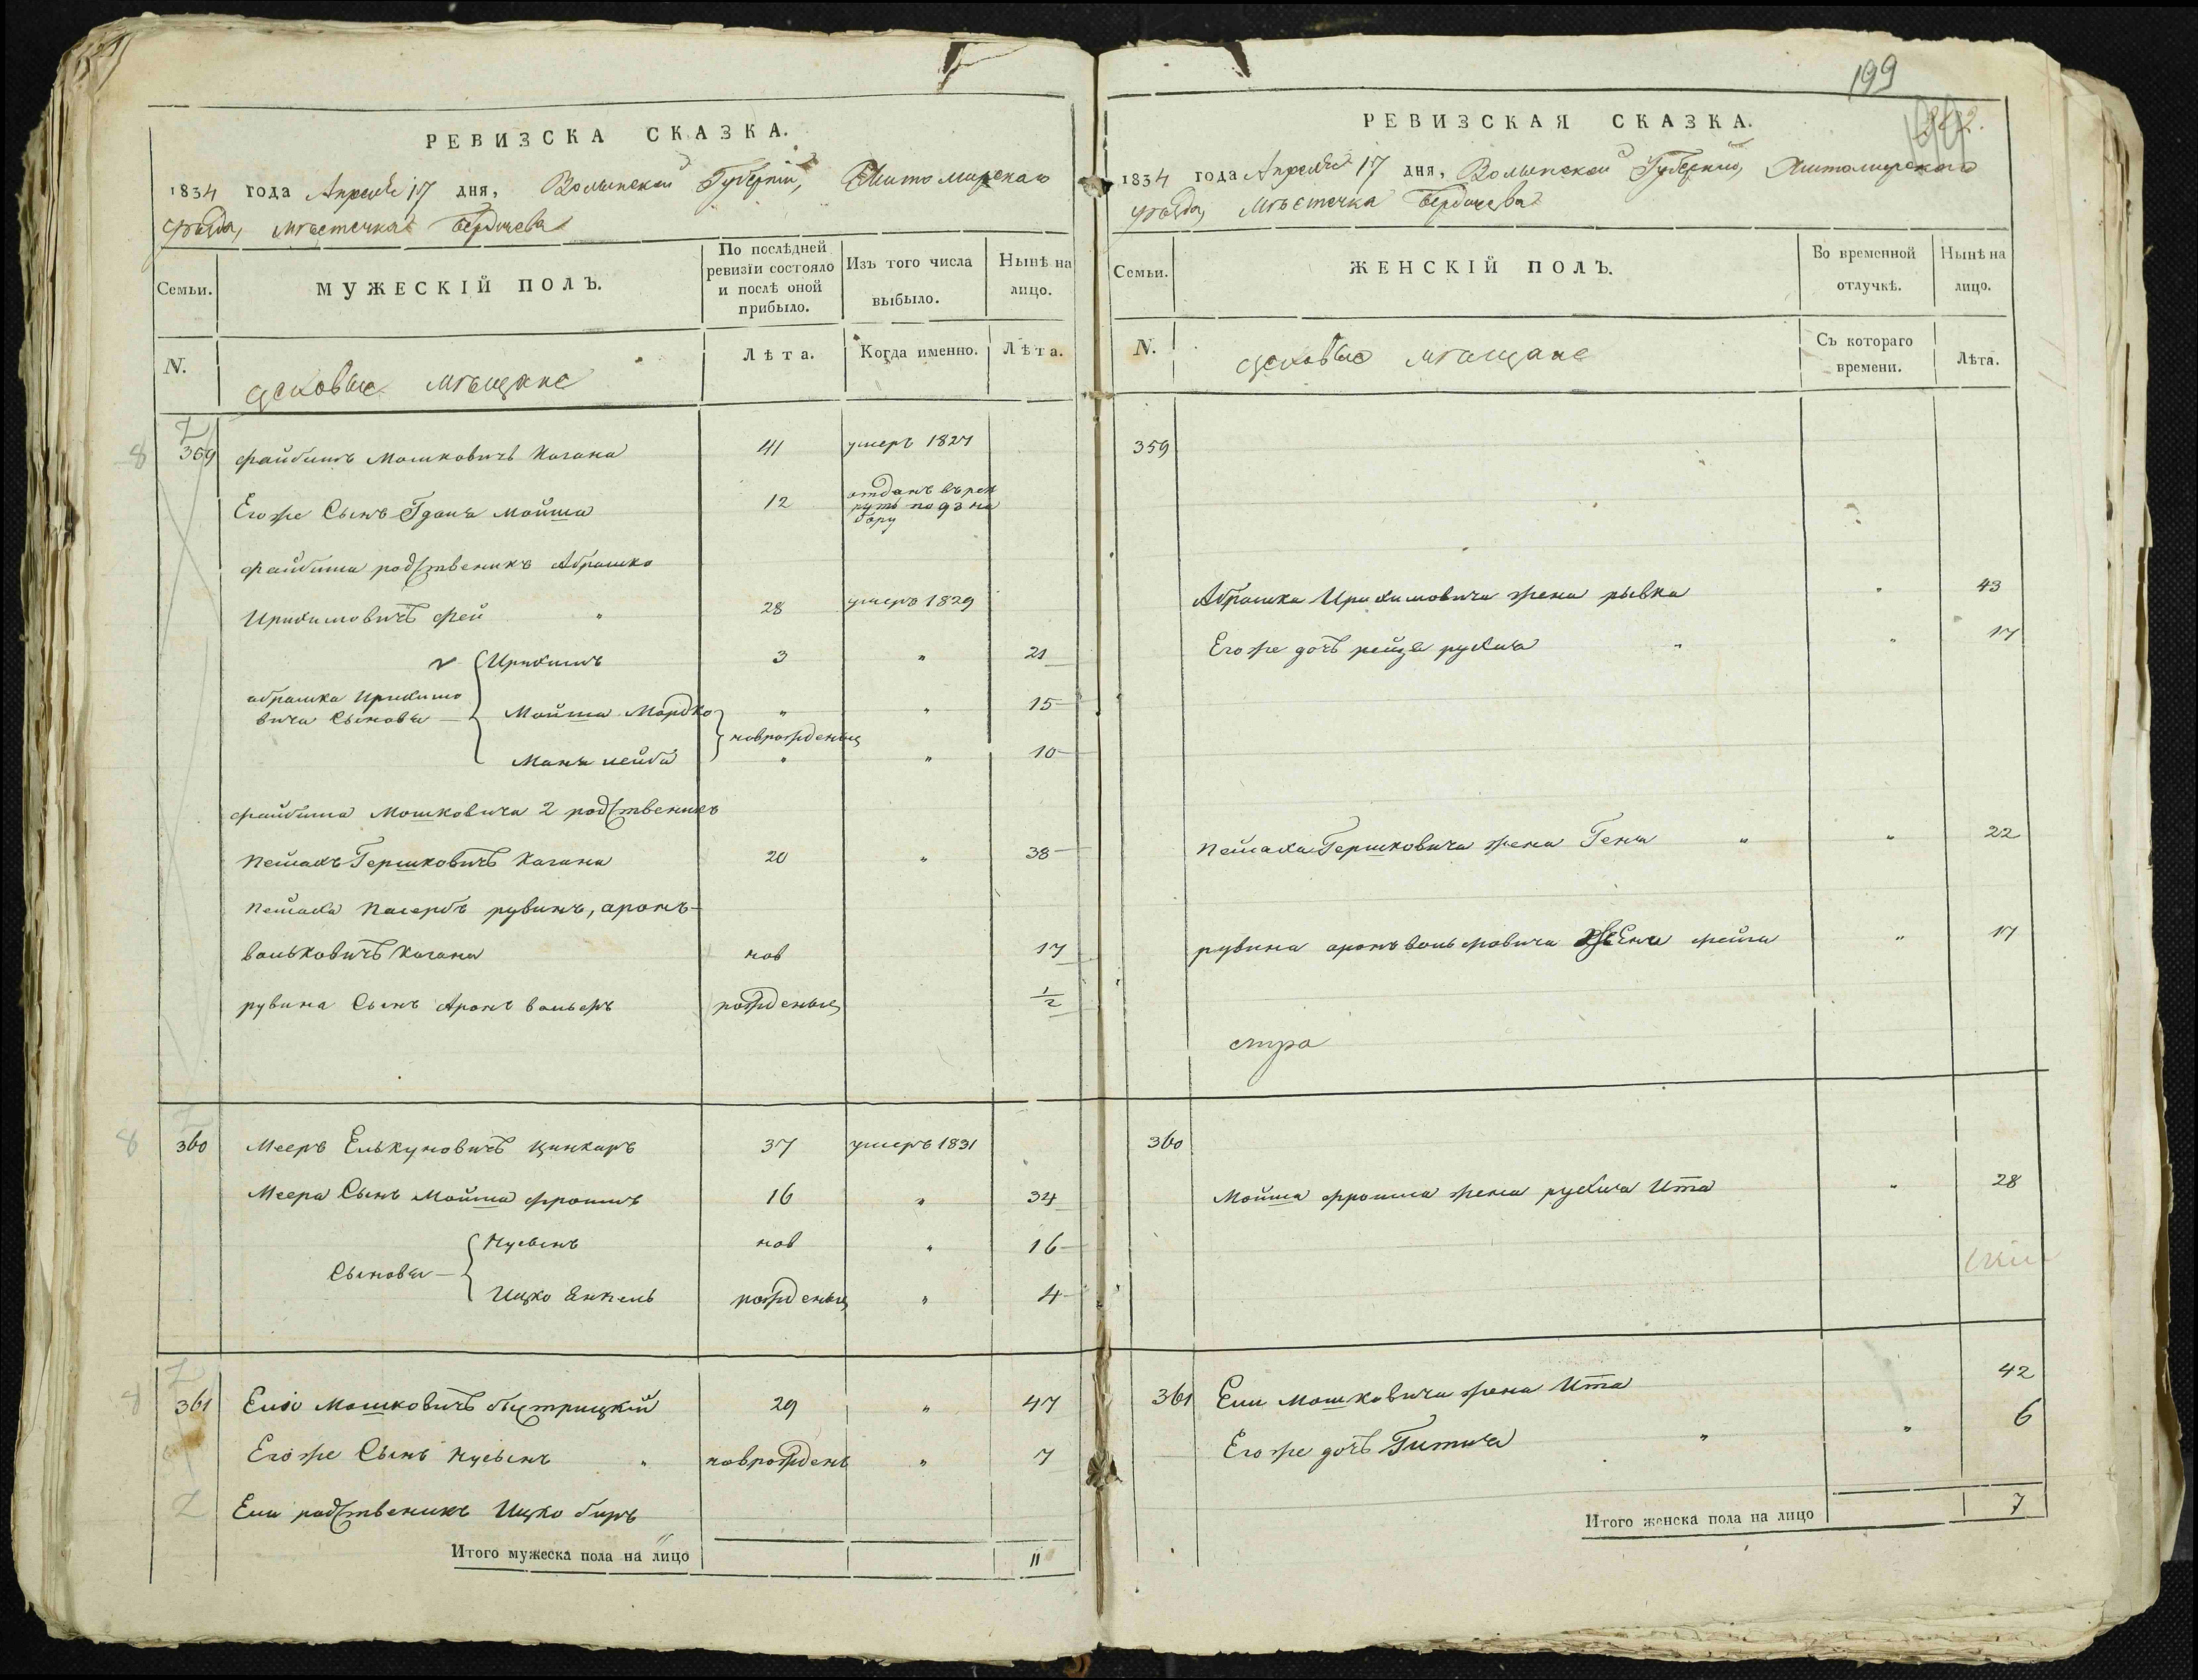 РЕВИЗСКА СКАЗКА.
1834 года Апреля 17 дня, Волынской Губернии, Житомирскаго
уѣзда, мѣстечка Бердичева
Семьи.
МУЖЕСКІЙ ПОЛЪ.
По послѣдней ревизіи состояло и послѣ оной прибыло.
Изъ того числа выбыло.
Нынѣ на лицо.
N.
цеховые мѣщане
Лѣта.
Когда именно.
Лѣта.
359 файбишъ Мошковичъ Кагана 41 умеръ 1827
Его же Сынъ Мойша 12 отданъ въ рек
рутъ по 93 на
бору
файбиша родственикъ Абрашко
28 умеръ 1829
3 " 21
абрашка
вича Сыновья Мойша Мордко " " 15
новрожденыи
лейба " " 10
файбиша Мошковича 2 родственикъ
Пейсахъ Гершковичъ Кагана 20 " 38
Пейсаха Пасербъ рувинъ, аронъ-
вольковичъ Кагана нов 17
рувина Сынъ Аронъ вольфъ рожденыи 1/2
360 Мееръ Елькуновичъ 37 умеръ 1831
Меера Сынъ Мойша фроимъ 16 " 34
Нусынъ нов " 16
Сыновья
Ицко Янкель рожденыи " 4
361 Елio Мошковичъ быстрицкій 29 " 47
Его же Сынъ Нусынъ " новрожденъ " 7
Ели родственикъ Ицко беръ
Итого мужеска пола на лицо 11
199
РЕВИЗСКАЯ СКАЗКА.
1834 года Апреля 17 дня, Волынской Губернии, Житомирскаго
уѣзда, Мѣстечка Бердичева
Семьи.
ЖЕНСКІЙ ПОЛЪ.
Во временной отлучкѣ.
Нынѣ на лицо.
N.
цеховые мѣщане
Съ котораго времени.
Лѣта.
359
Абрашка жена рывка " 43
Его же дочь рейзя рухля " " 17
Пейсаха Гершковича жена Геня " " 22
рувина аронъ вольфовича жена фейга " 17
360
Мойша фроима жена рухля Ита " 28
361 Ели Мошковича жена Ита 42
Его же дочь Гитля " " 6
Итого женска пола на лицо 7